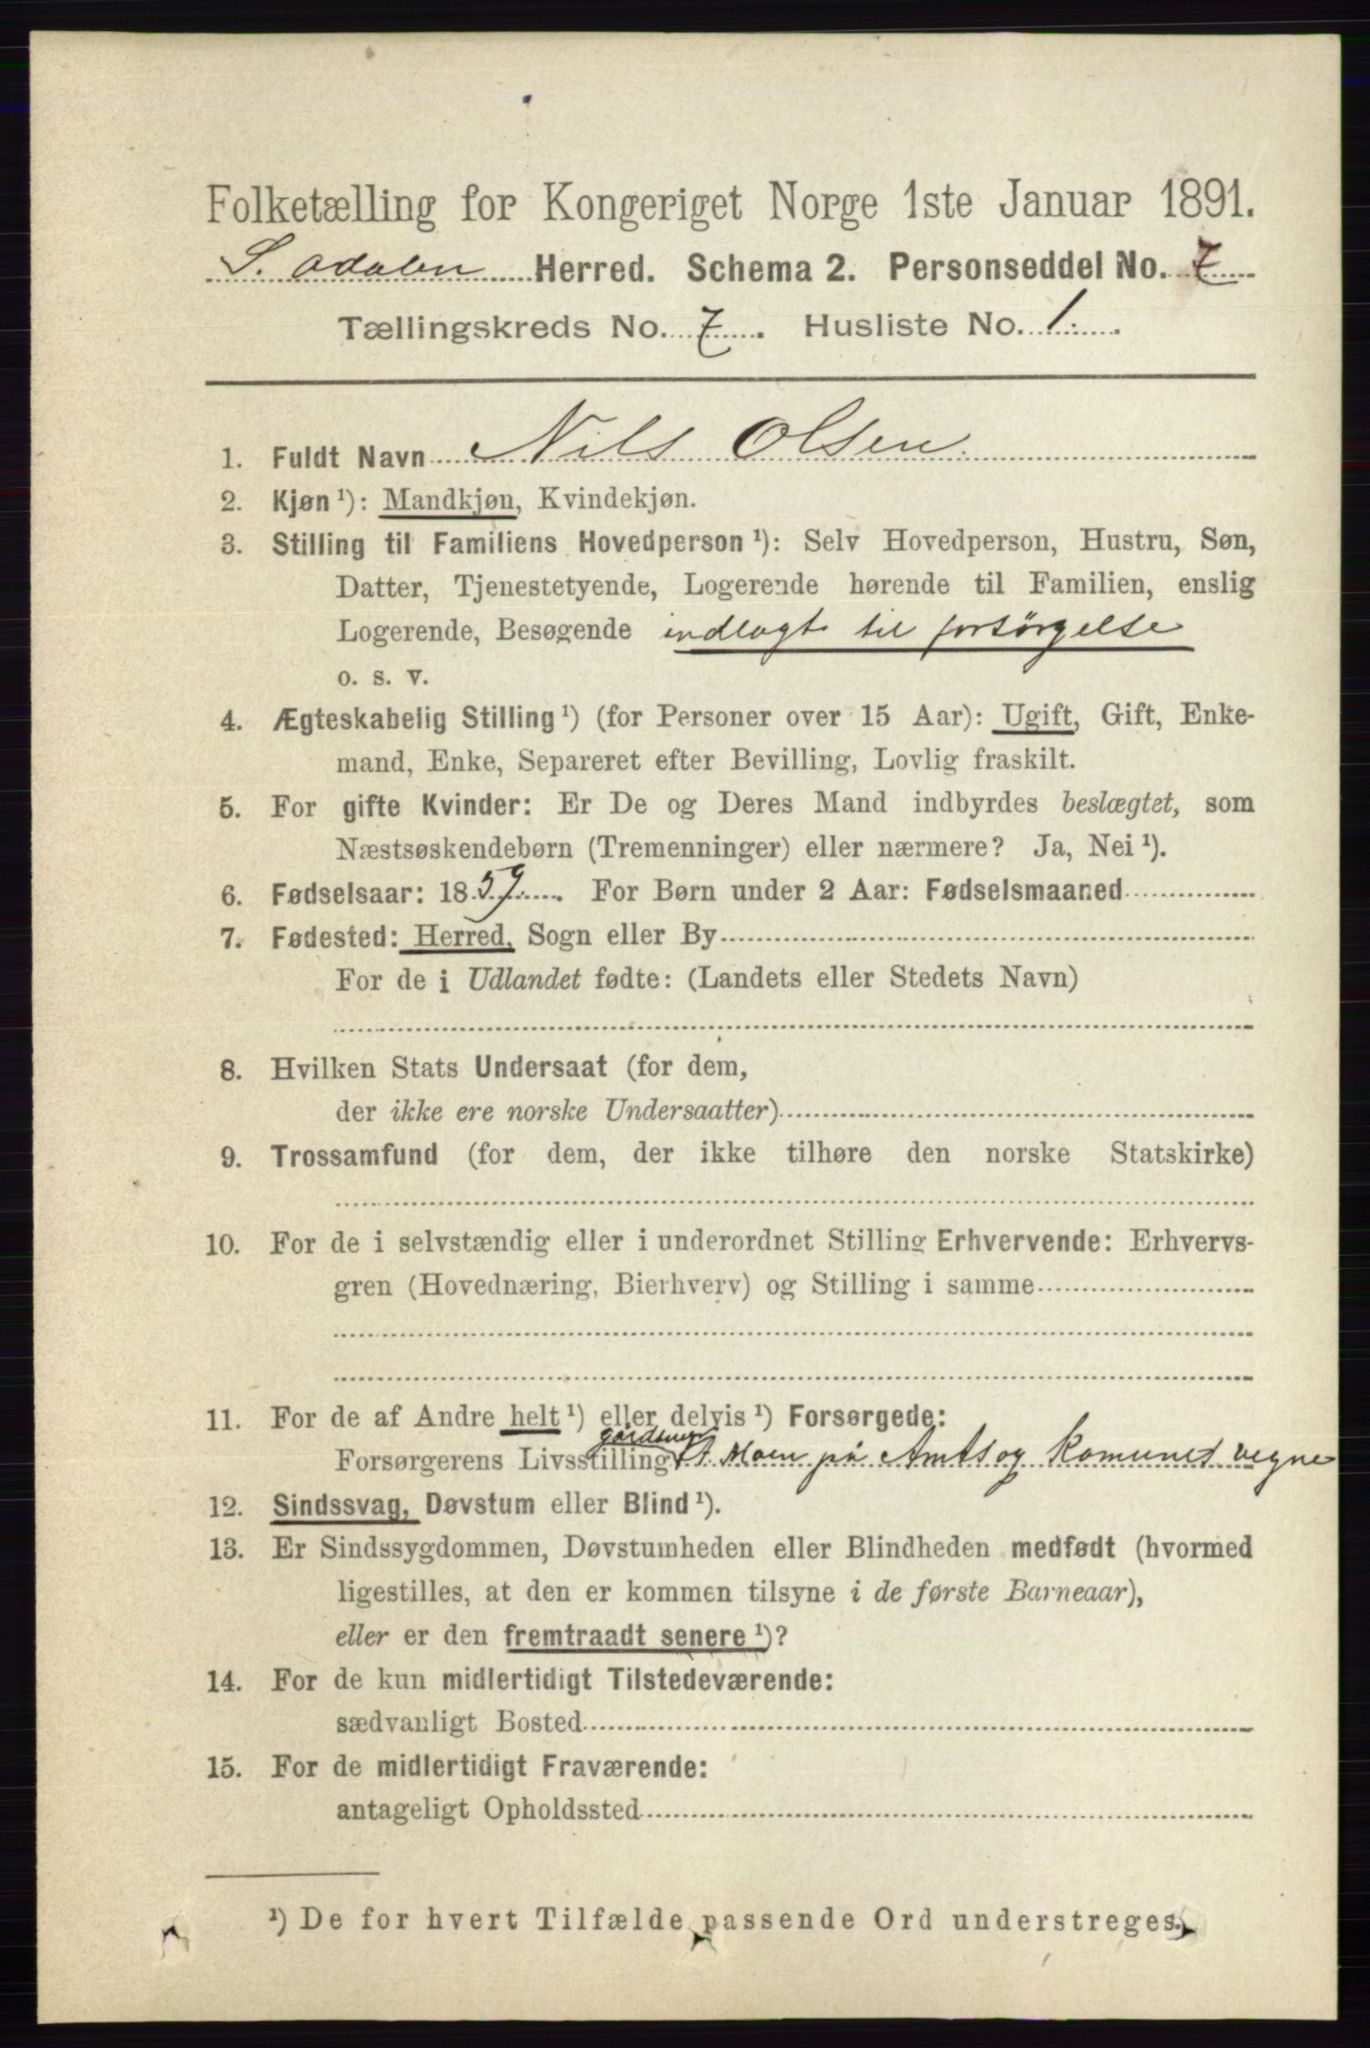 Folketælling for Kongeriget Norge 1ste Januar 1891.
S. Odalen Herred. Schema 2. Personseddel No. 7
Tællingskreds No. 7. Husliste No. 1.
1. Fuldt Navn Nils Olsen.
2. Kjøn ¹): Mandkjøn, Kvindekjøn.
3. Stilling til Familiens Hovedperson ¹): Selv Hovedperson, Hustru, Søn,
Datter, Tjenestetyende, Logerende hørende til Familien, enslig
Logerende, Besøgende indlagt til forsörgelse
o. s. v.
4. Ægteskabelig Stilling ¹) (for Personer over 15 Aar): Ugift, Gift, Enke-
mand, Enke, Separeret efter Bevilling, Lovlig fraskilt.
5. For gifte Kvinder: Er De og Deres Mand indbyrdes beslægtet, som
Næstsøskendebørn (Tremenninger) eller nærmere? Ja, Nei ¹).
6. Fødselsaar: 1859. For Børn under 2 Aar: Fødselsmaaned
7. Fødested: Herred, Sogn eller By
For de i Udlandet fødte: (Landets eller Stedets Navn)
8. Hvilken Stats Undersaat (for dem,
der ikke ere norske Undersaatter)
9. Trossamfund (for dem, der ikke tilhøre den norske Statskirke)
10. For de i selvstændig eller i underordnet Stilling Erhvervende: Erhvervs-
gren (Hovednæring, Bierhverv) og Stilling i samme
11. For de af Andre helt ¹) eller delvis ¹) Forsørgede:
Forsørgerens Livsstilling Moen på Amts og Komunes vegne
12. Sindssvag, Døvstum eller Blind ¹).
13. Er Sindssygdommen, Døvstumheden eller Blindheden medfødt (hvormed
ligestilles, at den er kommen tilsyne i de første Barneaar),
eller er den fremtraadt senere ¹)?
14. For de kun midlertidigt Tilstedeværende:
sædvanligt Bosted
15. For de midlertidigt Fraværende:
antageligt Opholdssted
¹) De for hvert Tilfælde passende Ord understreges.